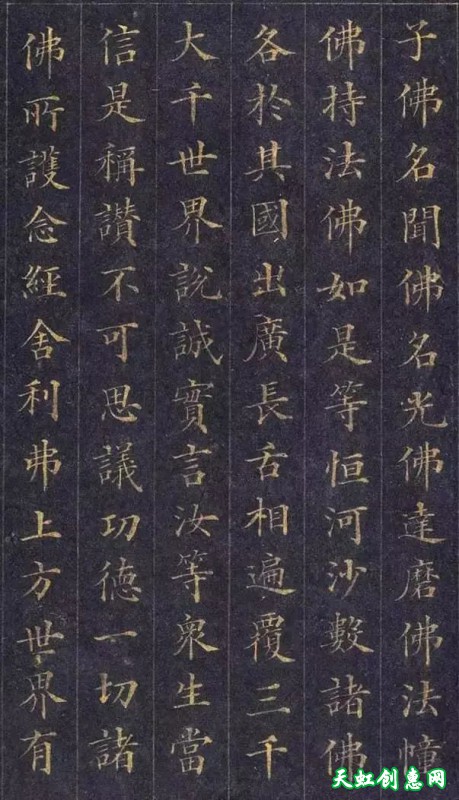 子佛名聞佛名光佛達磨佛法幢
佛持法佛如是等恒河沙數諸佛
各於其國出廣長舌相遍覆三千
大千世界說誠實言汝等衆生當
信是稱讚不可思議功德一切諸
佛所護念經舍利弗上方世界有
天虹创惠网